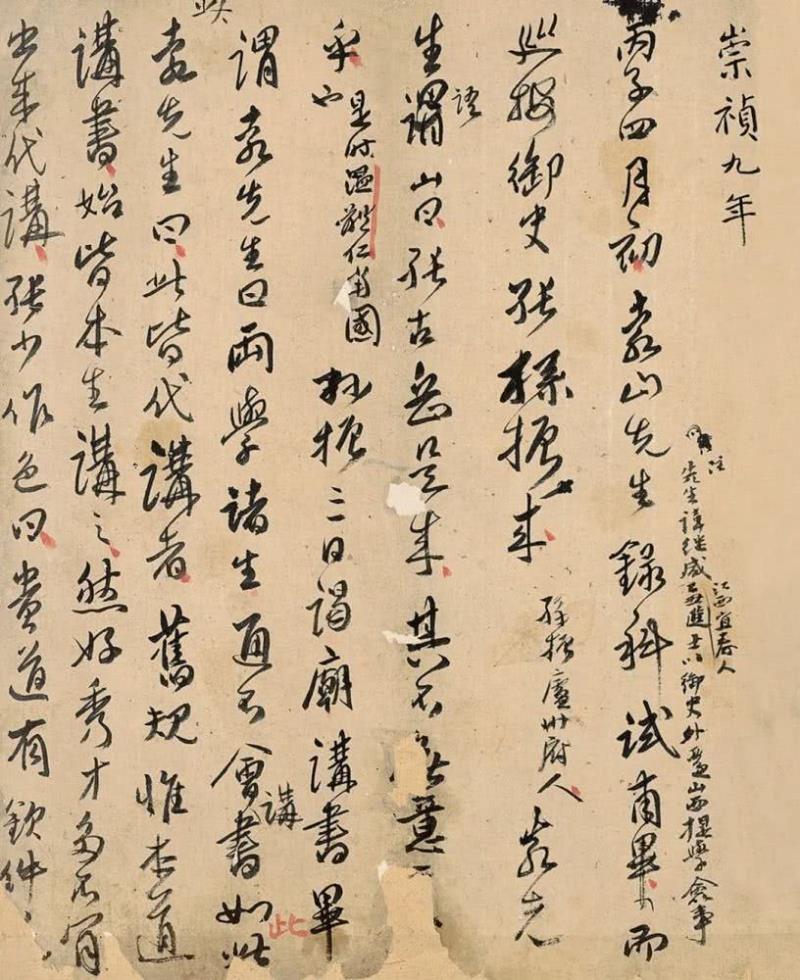 崇禎九年
丙子四月初袁山先生錄科試甫畢而
注先生諱繼咸江西宜春人乙丑進士以御史外遷山西提學僉事
巡按御史張孫振來孫振廬州府人袁先
生語謂山曰張古岳是來其不意
乎也是時溫體仁當國孫振三日謁廟講書畢
謂袁先生曰兩學諸生通不會講書如此
袁先生曰此皆代講者舊規惟本道
講書始皆本生講之然好秀才多不肯
出來代講張少作色曰貴道有欽件